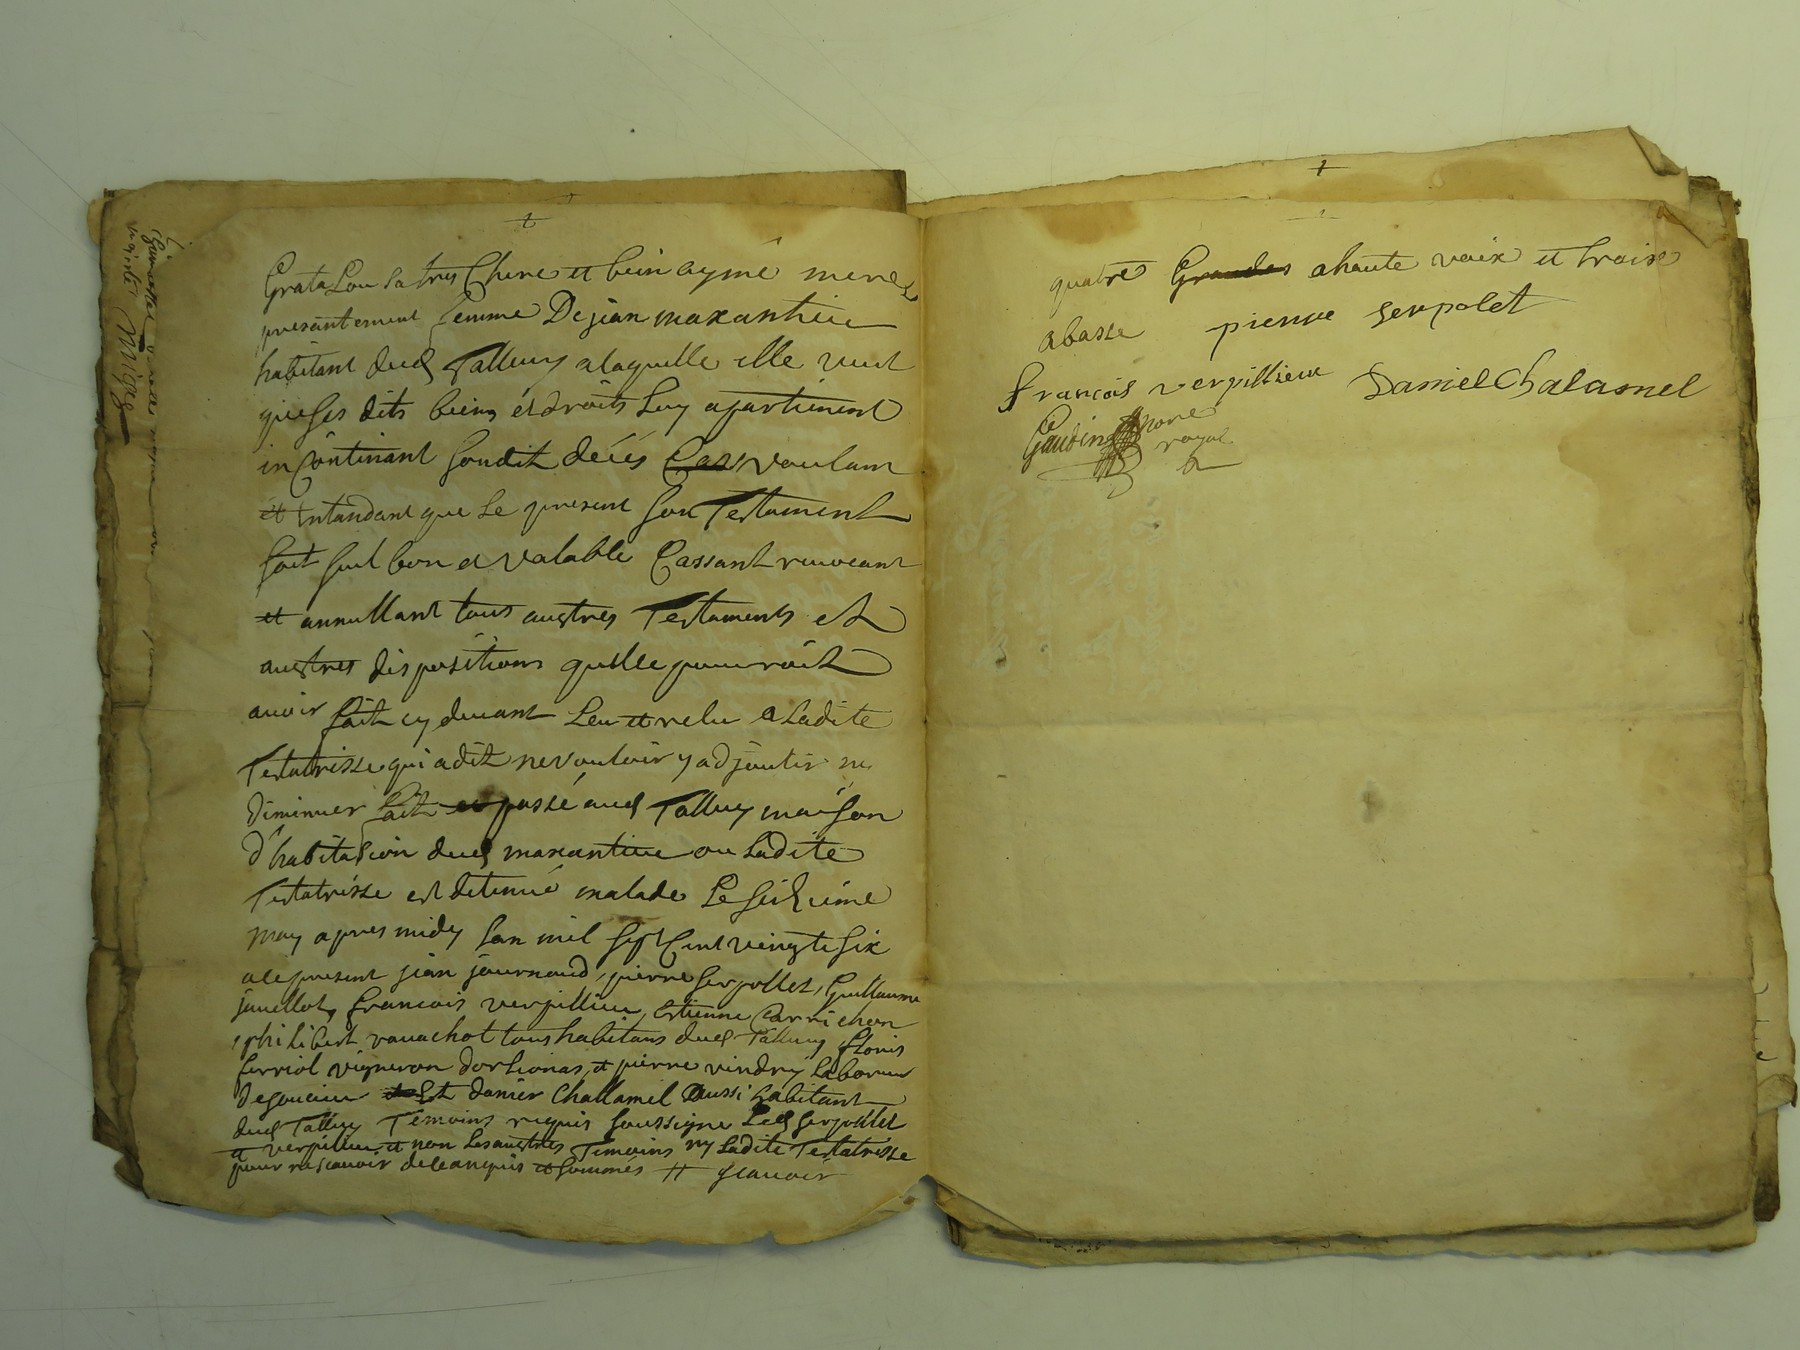 GrataLou sa tres Chere et bein aymé mere
presantement femme De jean maxantieu
habitant dud Talluy a laquelle elle veut
que ses dits beins et droits Luy apartienent
inContinant Son dit deces voulant
et entandant que Le present Son Testament
Soit Seul bon et valable Cassant revocant
et annullant tous austres Testaments et
austres dispositions quelle pouuroit
avoir fait cy devant Leu et relu a Ladite
Testatrisse qui a dit ne vouloir y adjouter ne
diminuer fait et passé aud Talluy maison
d'habitasion dud maxantieu ou Ladite
Testatrisse est detenue malade Le
may apres midy Lan mil Sept Cent vingt Six
a ce present jean journoud, pierre Serpollet, Guillaume
francois verpillieu, estienne Carrichon
philibert ravachot tous habitans dud Talluy
ferriol vigneron dorlienas, et pierre vindry Laboureur
de soucieu et danier Challamel aussi habitant
dud Talluy Temoins requis soussigne Led Serpollet
et verpillieu et non Les austres Temoins ny Ladite Testatrisse
pour ne scavoir de ce enquis et Sommés # scavoir
quatre a haute voix et troise
a basse pierre serpolet
francois verpillieux Daniel Chalamel
Gaudin nore
royal